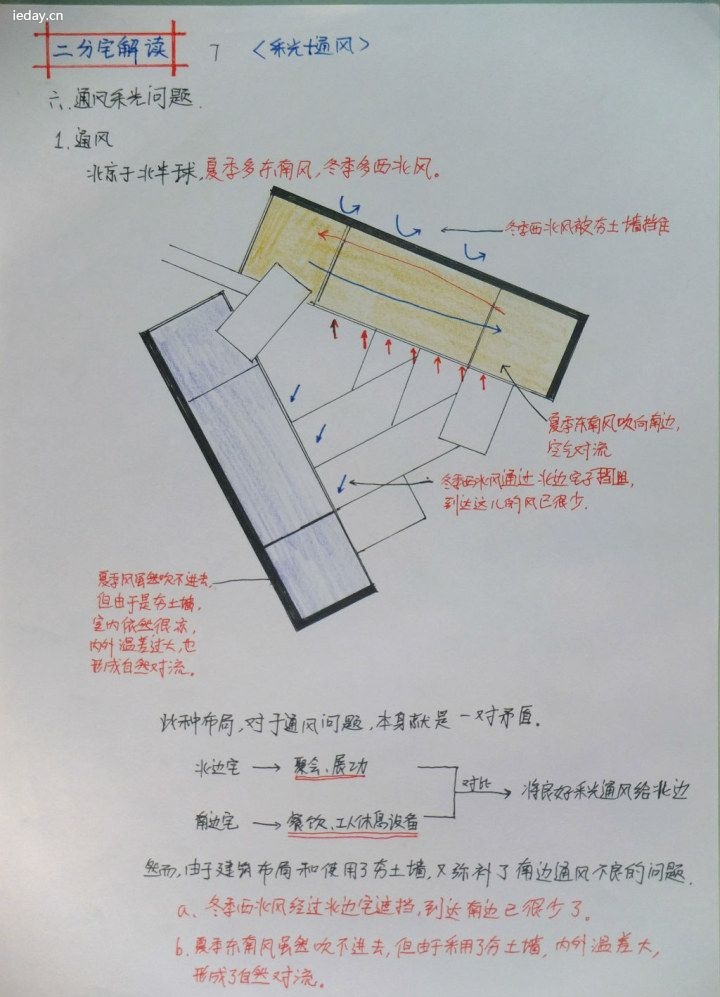 ieday.cn
二分宅解读 7 〈采光+通风〉
六.通风采光问题.
1.通风
北京于北半球,夏季多东南风,冬季多西北风。
冬季西北风被夯土墙挡住
夏季东南风吹向南边,
空气对流
冬季西北风通过北边宅子挡阻,
到达这儿的风已很少.
夏季风虽然吹不进去,
但由于是夯土墙,
室内依然很凉,
内外温差过大,也
形成自然对流。
此种布局,对于通风问题,本身就是一对矛盾.
北边宅 → 聚会、展功
对比 → 将良好采光通风给北边
南边宅 → 餐饮、工人休息设备
然而,由于建筑布局和使用了夯土墙,又弥补了南边通风不良的问题.
a、冬季西北风经过北边宅遮挡,到达南边已很少了。
b.夏季东南风虽然吹不进去,但由于采用了夯土墙,内外温差大,
形成了自然对流。